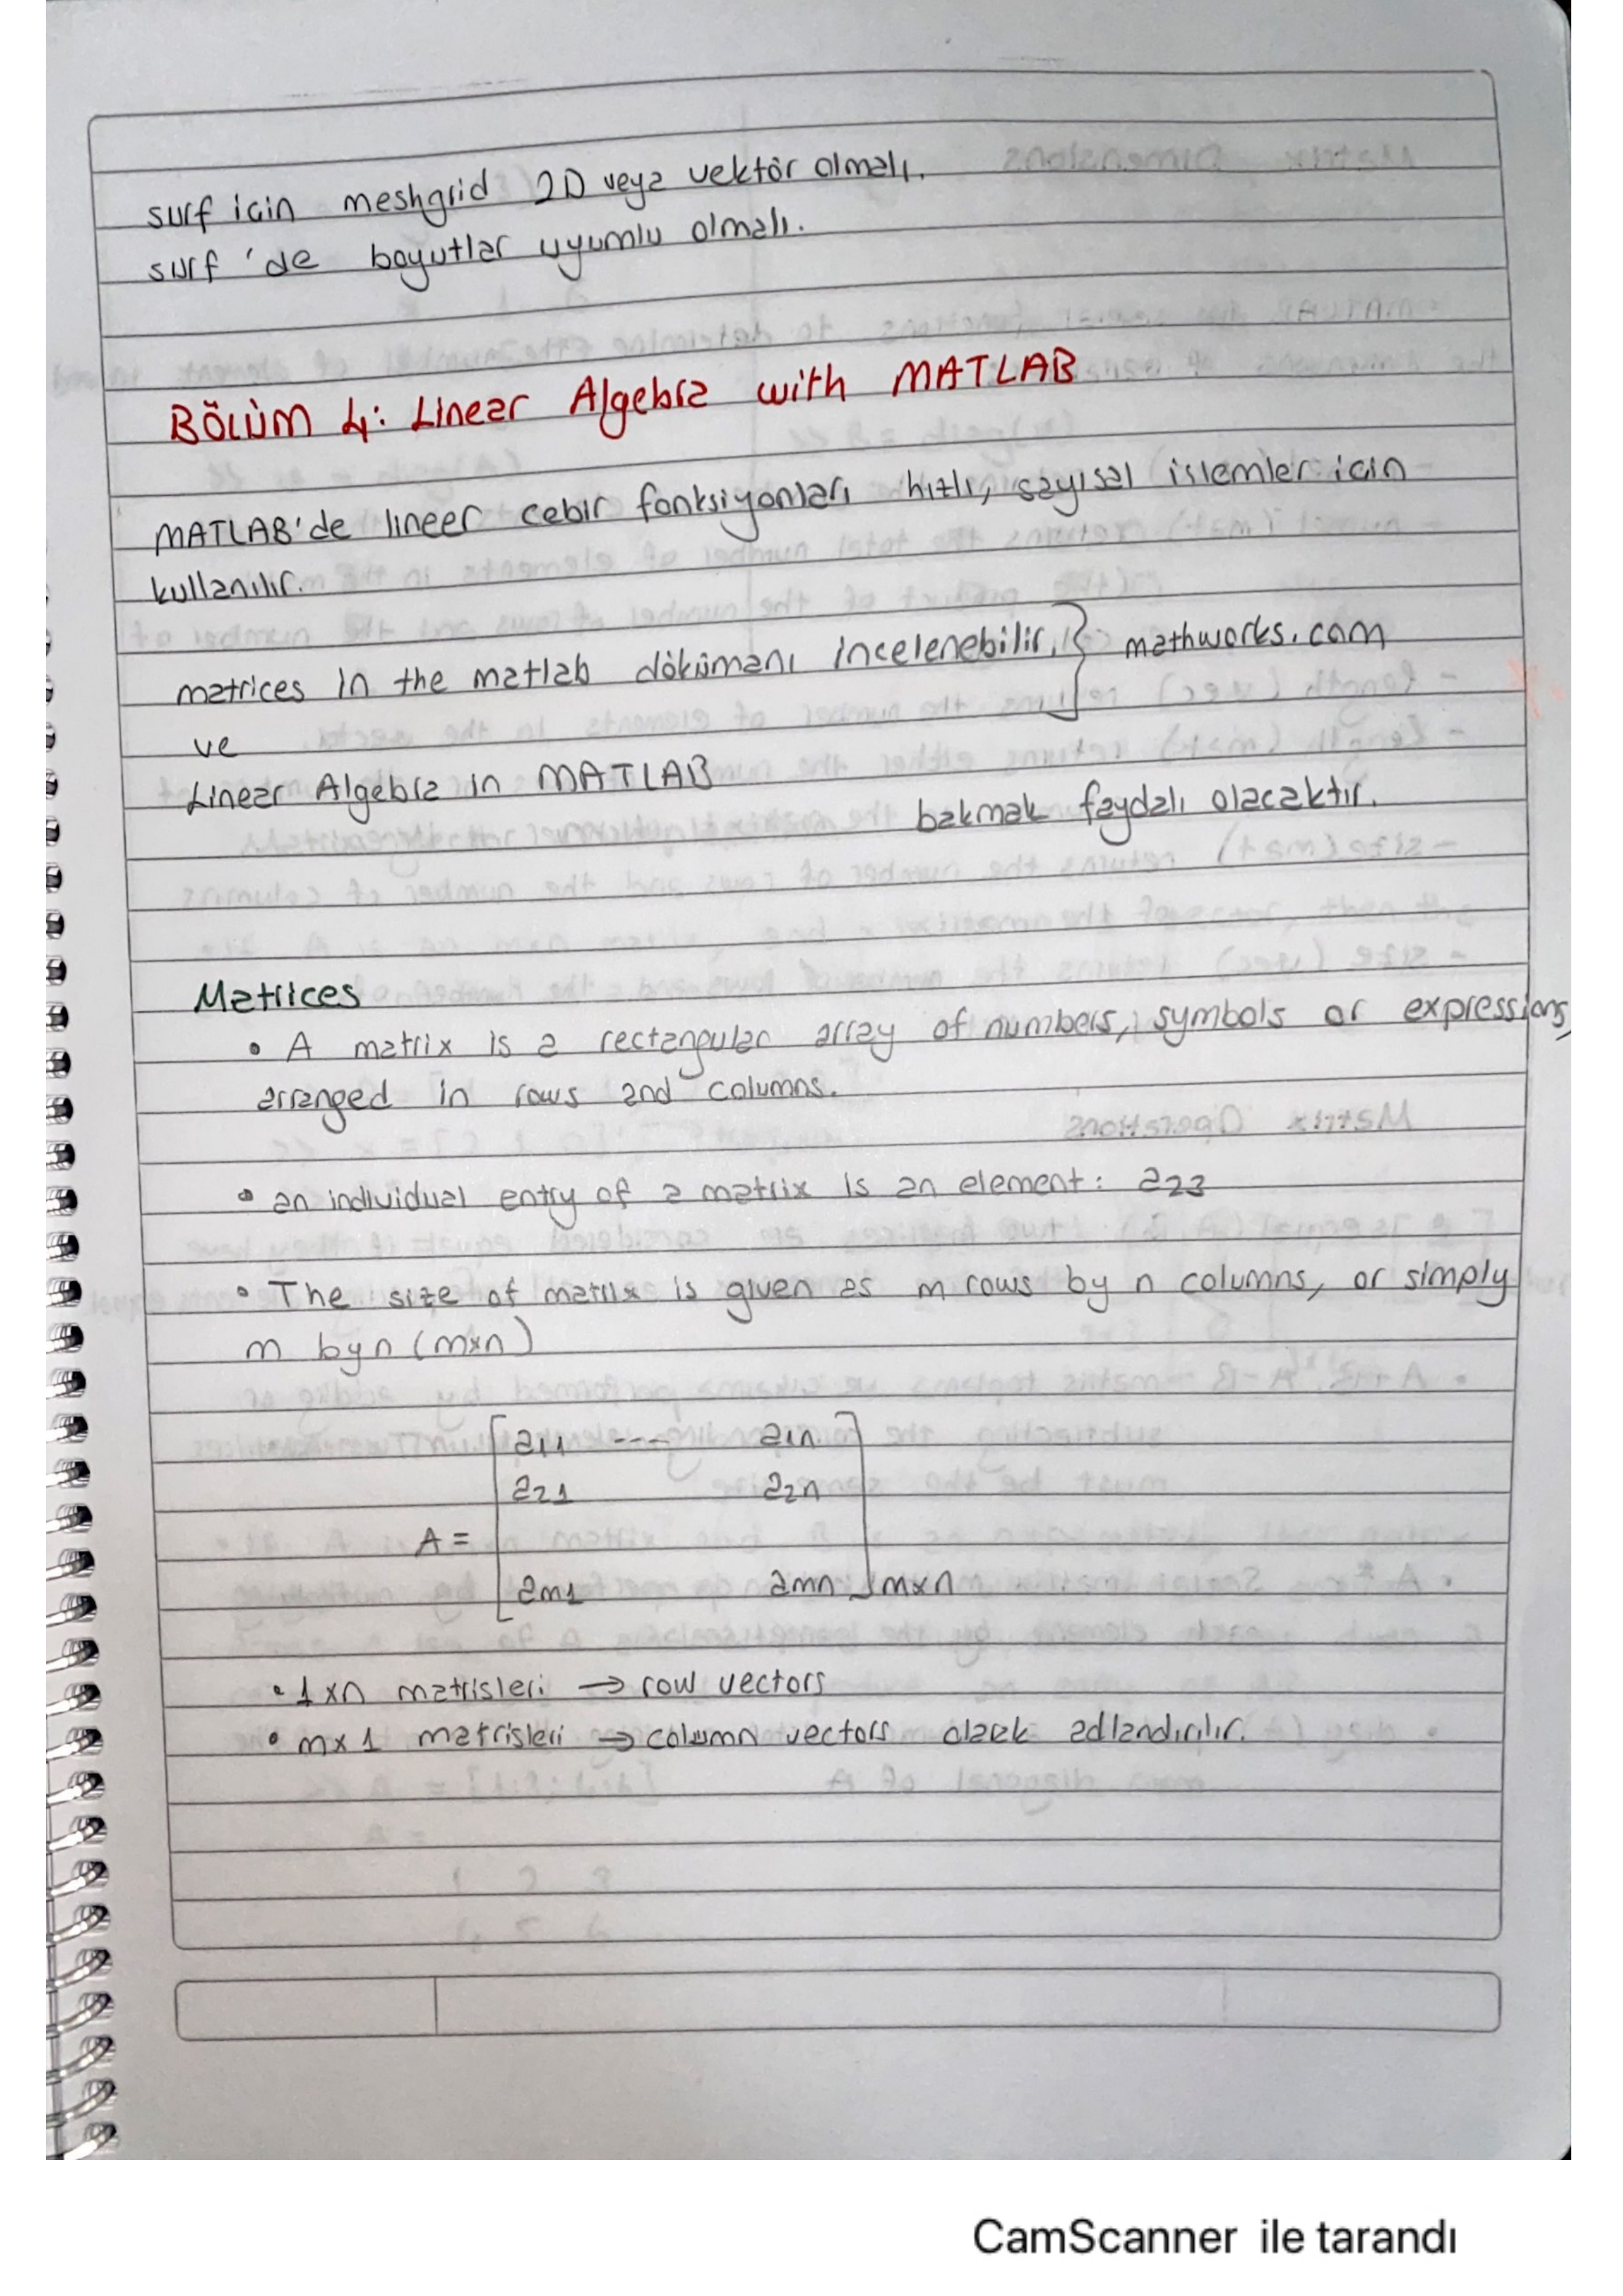 surf icin meshgrid 2D veya vektör olmalı.
surf 'de boyutlar uyumlu olmalı.
BÖLÜM 4: Linear Algebra with MATLAB
MATLAB'de lineer cebir fonksiyonları hızlı, sayısal islemler icin
kullanılır.
matrices in the matlab dökümanı incelenebilir. } mathworks.com
ve
Linear Algebra in MATLAB
bakmak faydalı olacaktır.
Matrices
• A matrix is a rectangular array of numbers, symbols or expressions,
arranged in rows and columns.
• an individual entry of a matrix is an element: a23
• The size of matrix is given as m rows by n columns, or simply
m by n (mxn)
a11 ---- a1n
a21 a2n
A =
am1 amn mxn
• 1xn matrisleri → row vectors
• mx1 matrisleri → column vectors olarak adlandırılır.
CamScanner ile tarandı